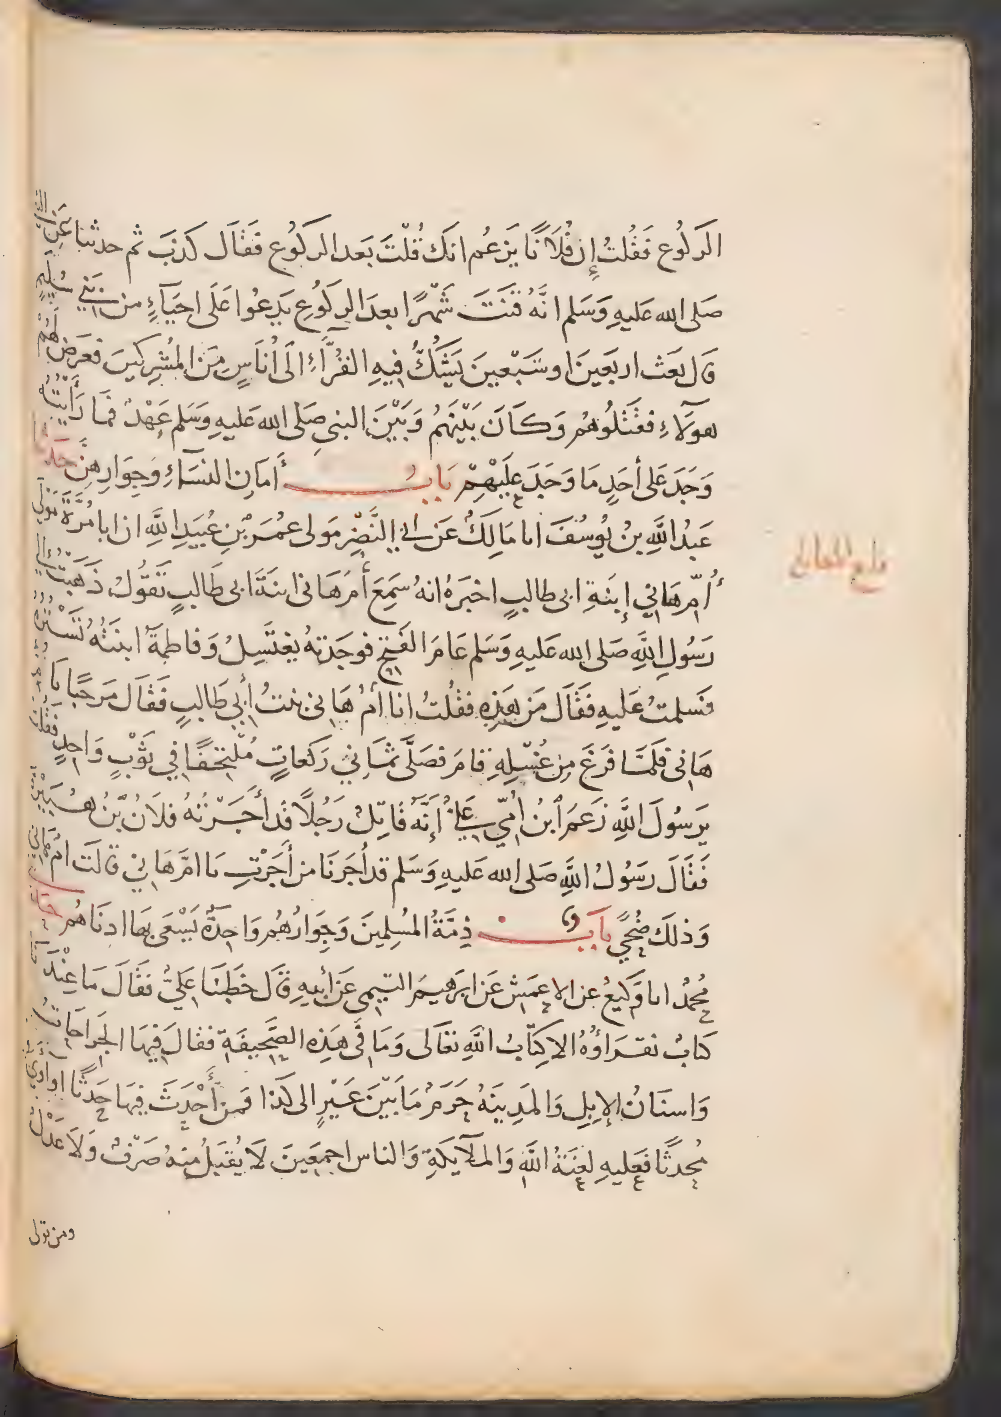 الركوع فقلت إن فلانًا يزعم انك قلت بعد الركوع فقال كذب ثم حدثنا عن النبي
صلى الله عليه وسلم انه قنت شهرًا بعد الركوع يدعوا على احياءٍ من بني سليم
قال بعث اربعين او سبعين يشك فيه القراء الى أناسٍ من المشركين فعرض لهم
هولاء فقتلوهم وكان بينهم وبين النبي صلى الله عليه وسلم عهد فما رأيته
وجد على أحدٍ ما وجد عليهم باب أمان النساء وجوارهن حدثنا
عبد الله بن يوسف انا مالك عن ابي النضر مولى عمر بن عبيد الله ان ابا مرة مولى
أم هاني إبنة ابي طالب اخبره انه سمع أم هاني ابنة ابي طالب تقول ذهبت الى
رسول الله صلى الله عليه وسلم عام الفتح فوجدته يغتسل وفاطمة ابنته تستره
فسلمت عليه فقال من هذه فقلت انا أم هاني بنت أبي طالب فقال مرحبًا يا
هاني فلما فرغ من غسله قام فصلى ثماني ركعاتٍ ملتحفًا في ثوبٍ واحدٍ فقلت
يرسول الله زعم ابن أمي علي أنه قاتل رجلًا قد أجرته فلان بن هبيرة
فقال رسول الله صلى الله عليه وسلم قد أجرنا من أجرت يا ام هاني قالت ام هاني
وذلك ضحًى باب ذمة المسلمين وجوارهم واحدة يسعى بها ادناهم حدثنا
محمد انا وكيع عن الاعمش عن ابرهيم التيمي عن أبيه قال خطبنا علي فقال ما عندنا
كتاب نقرأوه الا كتاب الله تعالى وما في هذه الصحيفة فقال فيها الجراحات
واسنان الإبل والمدينه حرم ما بين عيرٍ الى كذا فمن أحدث فيها حدثًا او آوى
محدثًا فعليه لعنة الله والملائكة والناس اجمعين لا يقبل منه صرف ولا عدل
ومن تولى